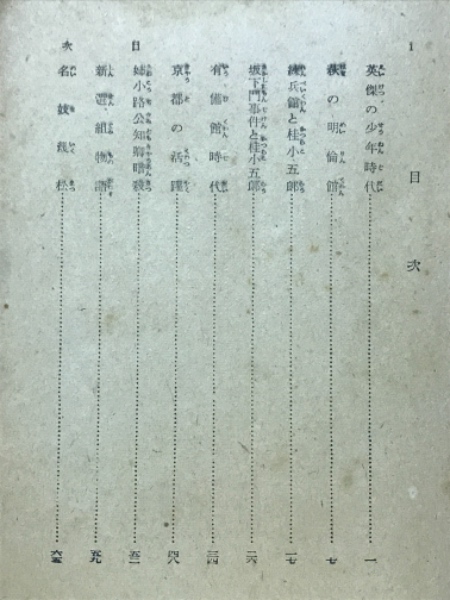 1
目次
英傑の少年時代……一
萩の明倫館……七
練兵館と桂小五郎……一七
坂下門事件と桂小五郎……二六
有備館時代……三四
京都の活躍……四八
姉小路公知卿暗殺……五二
新選組物語……五九
名妓幾松……六五
目次